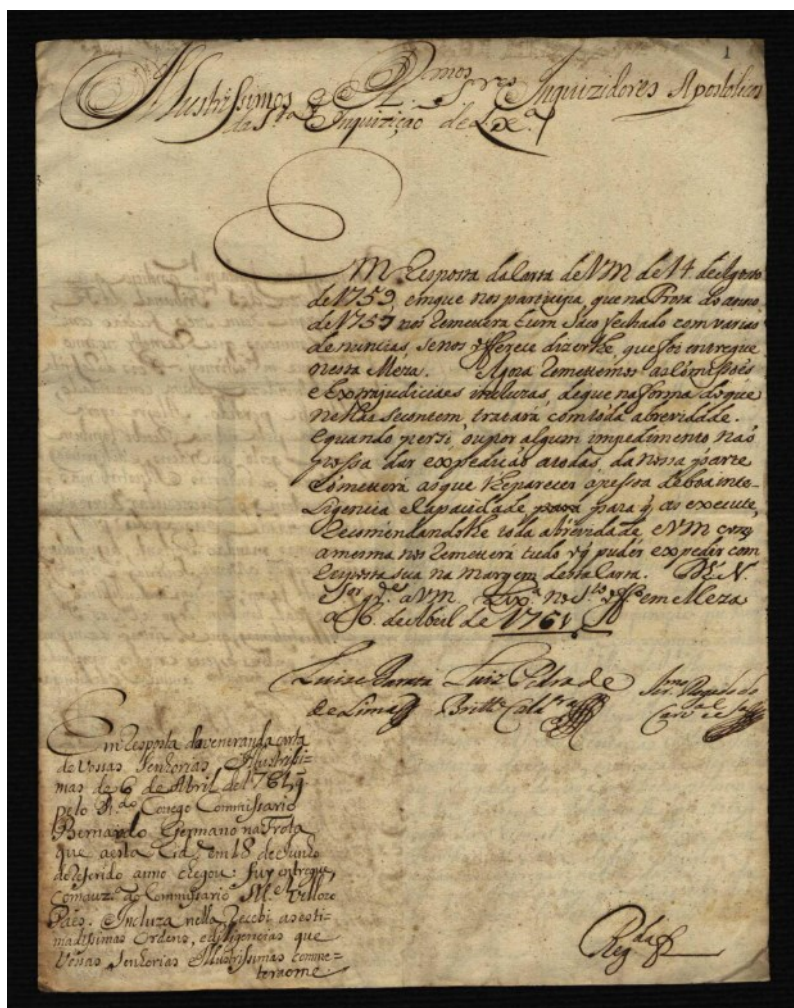 1
Illustrissimos e R.mos S.res Inquizidores Apostolicos
da S.ta Inquizição de Lx.a
Em Resposta da Carta de VM de 14 de Agosto
de 1759, em que nos participa, que na Frota do anno
de 1757 nos Remettera hum Saco fechado com varias
denuncias, se nos offerece dizerlhe, que foi entregue
nesta Meza. Agora Remettemos as Comissoẽs
e Extrajudiciaes incluzas, de que na forma do que
nellas se contem tratará com toda abrevidade.
equando per si, ou por algum impedimento naõ
possa dar expedicaõ atodas, da nossa parte
Cometterá as que lhe parecer apessoa de boa inte-
ligencia eCapacidade para para q̃ as execute,
Recomendandolhe toda abrevidade, e VM com
amesma nos Remetterá tudo o q̃ pudér expedir com
Resposta sua na margem desta Carta. D.s N.
S.or g.de a VM. Lix.a no S.to Off.o em Meza
a 6. de Abril de 1761
Luis Barata Luiz Pedro de
de Lima Britto Cald.ra
Em Resposta da veneranda carta
de Vossas Senhorias Illustrissi-
mas de 6 de Abril de 1761 q̃.
pelo R.do Conego Commissario
Bernardo Germano na Frota
que aesta Cid.e em 18 de Junho
do referido anno chegou: fuy entregue,
Commissario M.el
Paes. Incluza nella Recebi as esti-
madissimas Ordens, e diligencias que
Vossas Senhorias Illustrissimas comme-
teraome.
Reg.da